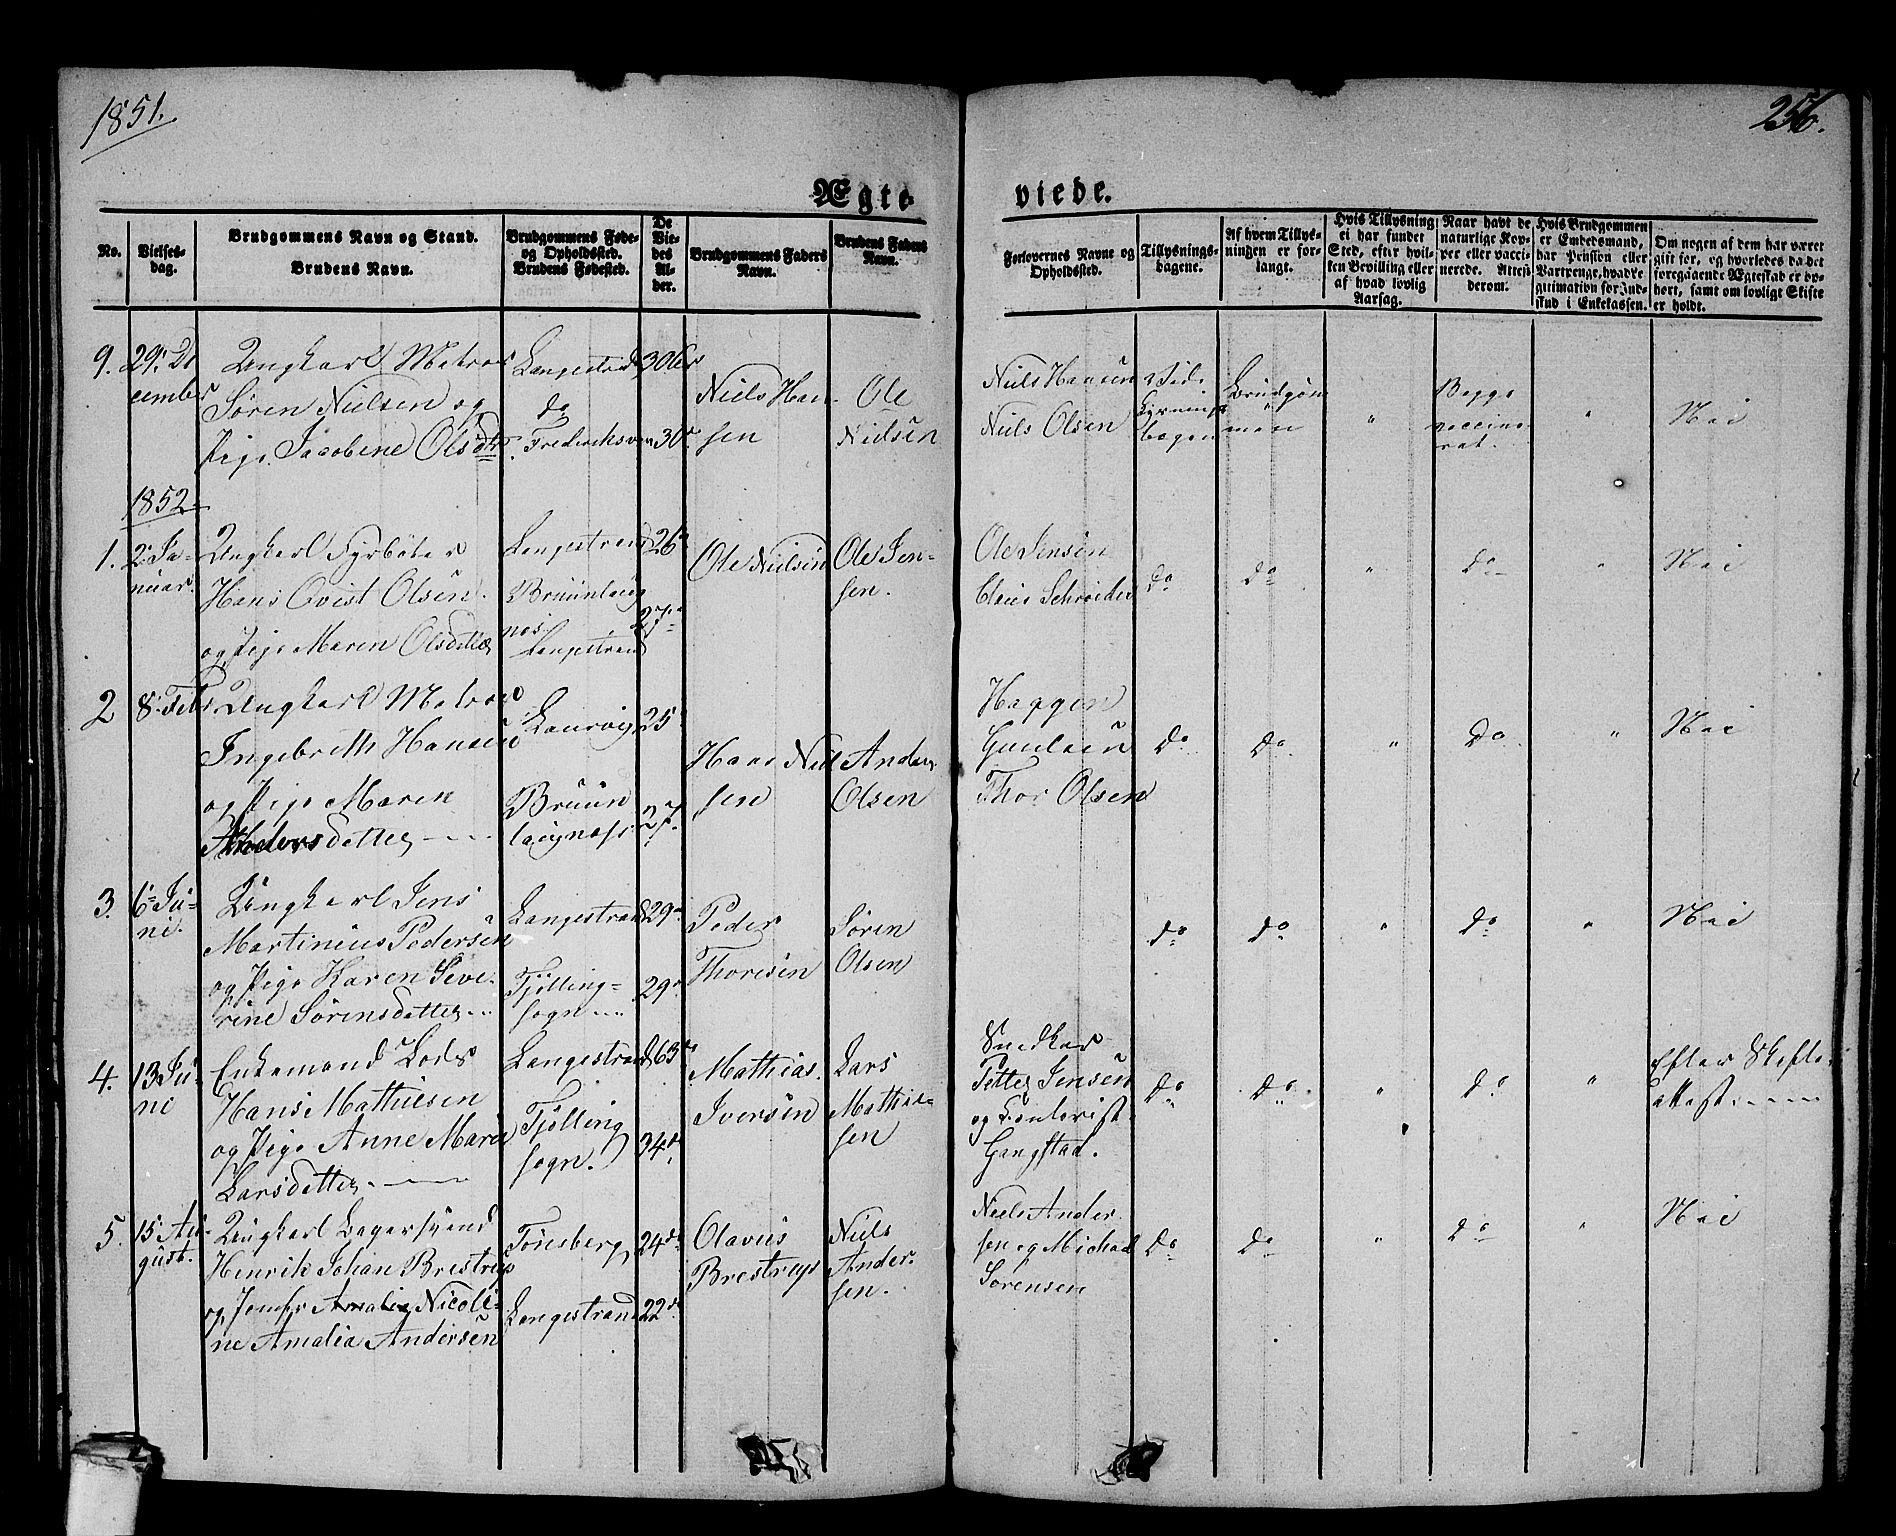 1851.
256.
Ægte
viede.
No.
Vielses-
dag.
Brudgommens Navn og Stand.
Brudens Navn.
Brudgommens Føde-
og Opholdssted.
Brudens Fødested.
De
Vie-
des
Al-
der.
Brudgommens Faders
Navn.
Brudens Faders
Navn.
Forlovernes Navne og
Opholdssted.
Tillysnings-
dagene.
Af hvem Tillys-
ningen er for-
langt.
Hvis Tillysning
ei har fundet
Sted, efter hvil-
ken Bevilling eller
af hvad lovlig
Aarsag.
Naar havt de
naturlige Kop-
per eller vacci-
nerede. Attest
derom.
Hvis Brudgommen
er Embedsmand,
har Pension eller
Vartpenge, hvad Le-
gitimation for Ind-
skud i Enkekassen.
Om nogen af dem har været
gift før, og hvorledes da det
foregaaende Ægteskab er op-
hørt, samt om lovligt Skifte
er holdt.
9.
29. De
cember
Ungkarl Matros
Søren Nielsen og
Pige Jacobine Olsdtr.
Langestrand
do
Frederiksvern
30
30
Niels Han-
sen
Ole
Nielsen
Niels Hansen
Niels Olsen
Vide
Lysnings
bogen
Brudgom
men
"
Begge
vaccine
rat.
"
Nei
1852
1.
2. Ja-
nuar.
Ungkarl Fyrbøter
Hans Qvist Olsen
og Pige Maren Olsdatter
Langestrand
Bruunlaug
næs
Langestrand
26
27
Ole Nielsen
Ole Jen-
sen.
Ole Jensen
Claus Schrøder
do
do
"
do
"
Nei
2
8. Febr
Ungkarl Matros
Ingebrith Hansen
og Pige Maren
Andersdatter
Laurvig
Bruun
laugnæss
25
27.
Hans Niel
sen
Anders
Olsen
Thor Olsen
do
do
"
do
"
Nei
3.
6 Ju-
ni.
Ungkarl Jens
Martinius Pedersen
og Pige Karen Seve-
rine Sørensdatter
Langestrand
Tjølling-
sogn
29
29
Peder
Thoresen
Søren
Olsen
do
do
"
do
"
Nei
4.
13 Ju-
ni
Enkemand Lods
Hans Mathiesen
og Pige Anne Marie
Larsdatter
Langestrand
Tjølling
sogn.
63
34
Mathias
Iversen
Lars
Mathie-
sen
Snedker
Petter Jensen
og
Gangstad.
do
do
"
do
"
Efter Skifte
attest
5.
15 Au-
gust.
Ungkarl Bagersvend
Henrik Johan Brestrup
og Jomfr Amalie Nicoli-
ne Amalia Andersen
Tønsberg
Langestrand
24
22
Olavus
Brestrup
Niels
Ander-
sen.
Niels Ander
sen og Michael
Sørensen
do
do
"
do
"
Nei